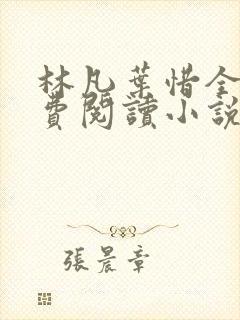 林凡葉惜全
費閱讀小說
張晨章